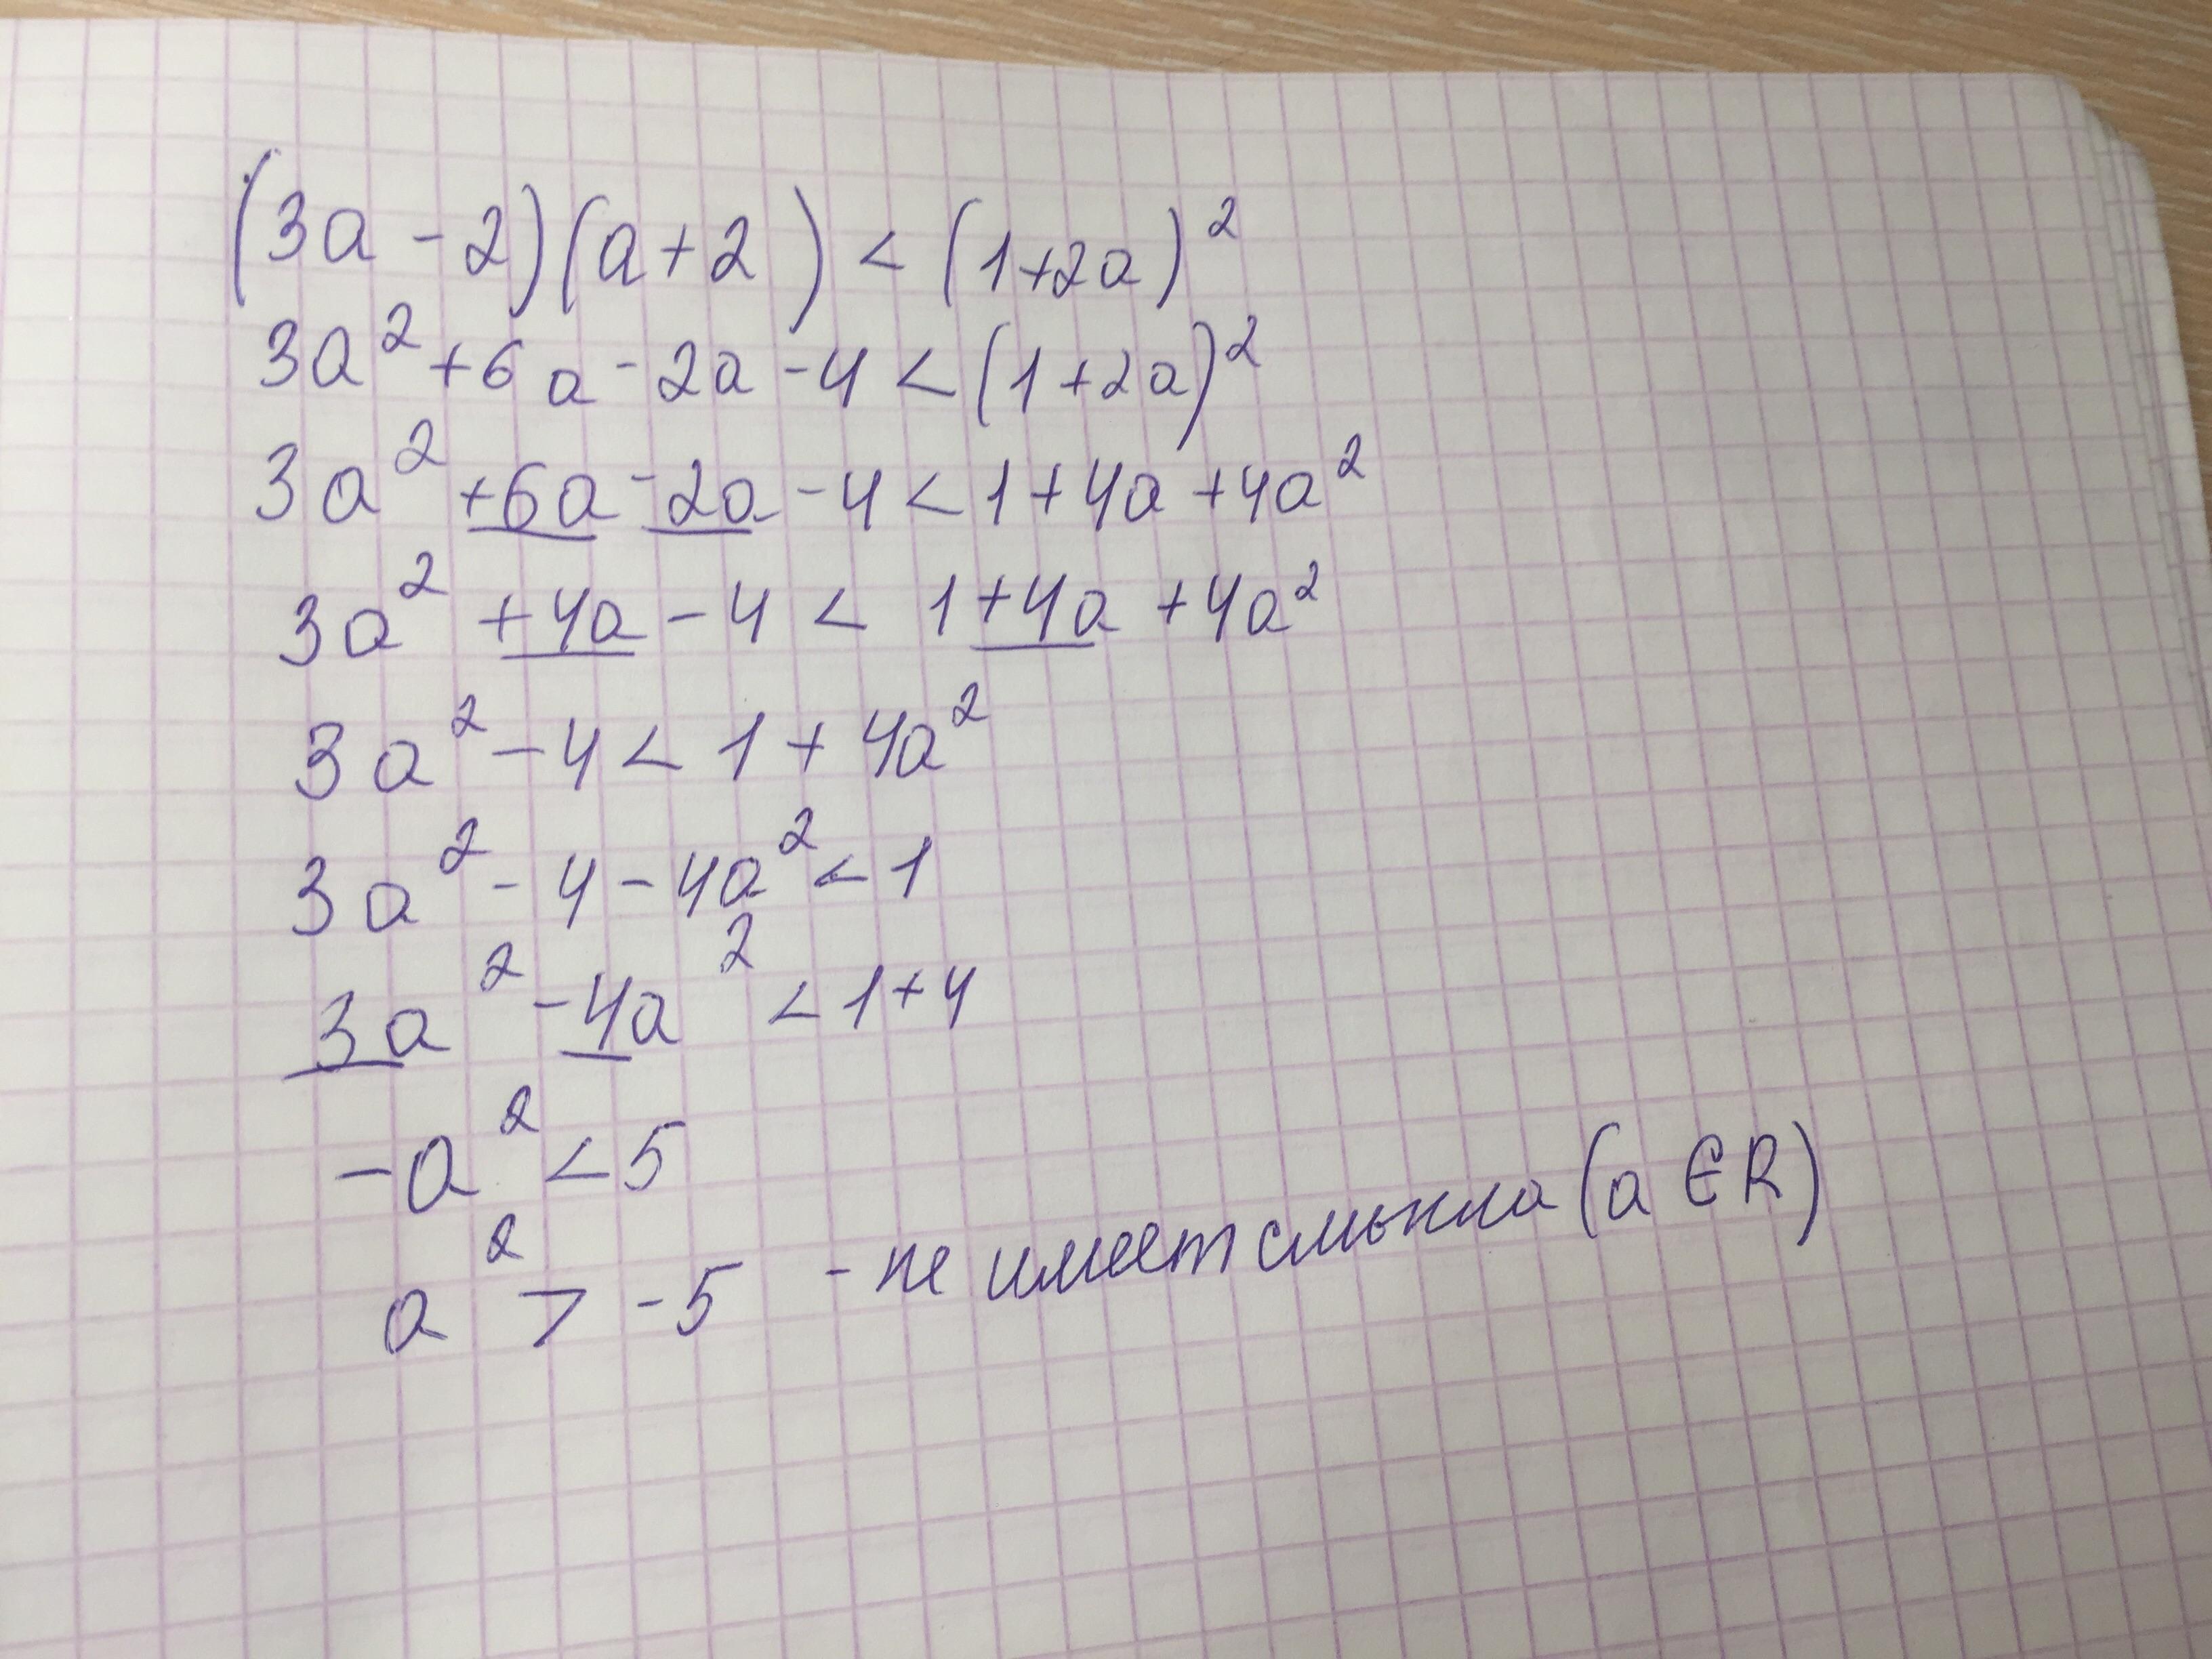 (3a - 2)(a + 2) < (1 + 2a)²
3a² + 6a - 2a - 4 < (1 + 2a)²
3a² + 6a - 2a - 4 < 1 + 4a + 4a²
3a² + 4a - 4 < 1 + 4a + 4a²
3a² - 4 < 1 + 4a²
3a² - 4 - 4a² < 1
3a² - 4a² < 1 + 4
-a² < 5
a² > -5 - не имеет смысла (a ∈ R)